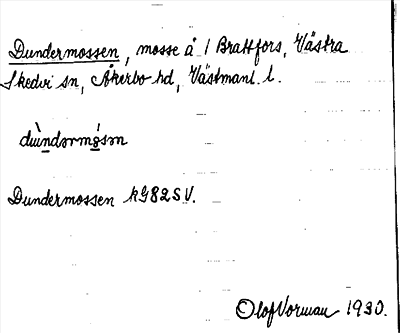 Dundermossen, mosse å 1 Brattfors, Västra
Skedvi sn, Åkerbo hd, Västmanl. l.
dùndərmósən
Dundermossen kG82SV.
Olof Vorman 1930.